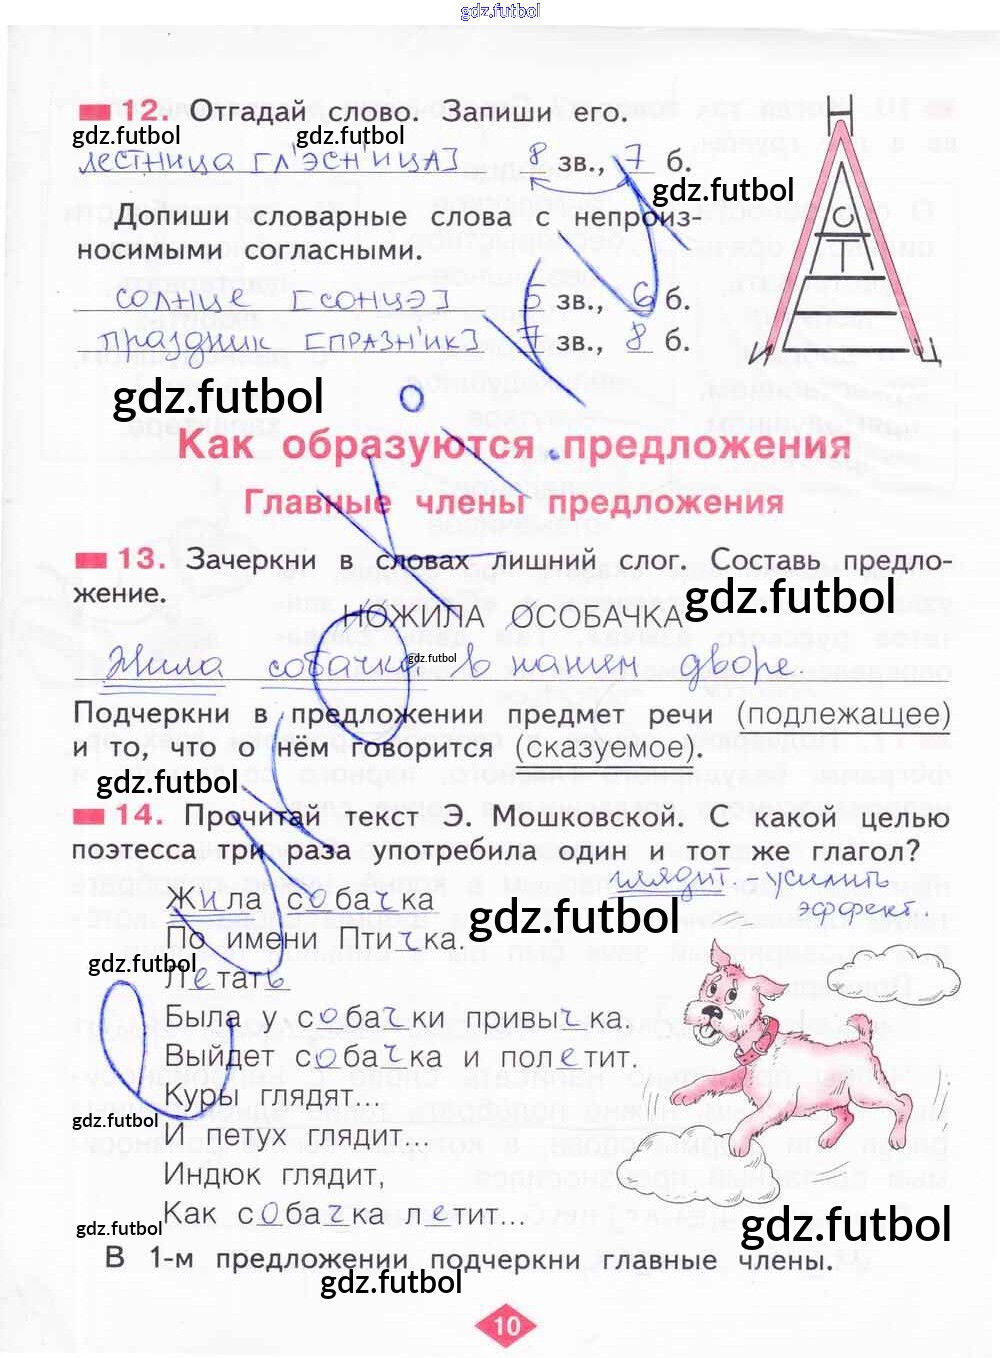 gdz.futbol
12. Отгадай слово. Запиши его.
gdz.futbol gdz.futbol
лестница [Л'ЭСН'ИЦА] 8 зв., 7 б.
gdz.futbol
Допиши словарные слова с непроиз-
носимыми согласными.
солнце [СОНЦЭ] 5 зв., 6 б.
праздник [ПРАЗН'ИК] 7 зв., 8 б.
Л
Е
С
Т
Н
И Ц
gdz.futbol
Как образуются предложения
Главные члены предложения
13. Зачеркни в словах лишний слог. Составь предло-
жение.
gdz.futbol
НОЖИЛА ОСОБАЧКА
Жила собачка в нашем дворе.
gdz.futbol
Подчеркни в предложении предмет речи (подлежащее)
и то, что о нём говорится (сказуемое).
gdz.futbol
14. Прочитай текст Э. Мошковской. С какой целью
поэтесса три раза употребила один и тот же глагол?
глядит - усилить
эффект.
Жила собачка
gdz.futbol
По имени Птичка.
gdz.futbol
Летать
Была у собачки привычка.
Выйдет собачка и полетит.
Куры глядят...
gdz.futbol
И петух глядит...
Индюк глядит,
Как собачка летит...
gdz.futbol gdz.futbol
В 1-м предложении подчеркни главные члены.
gdz.futbol
10